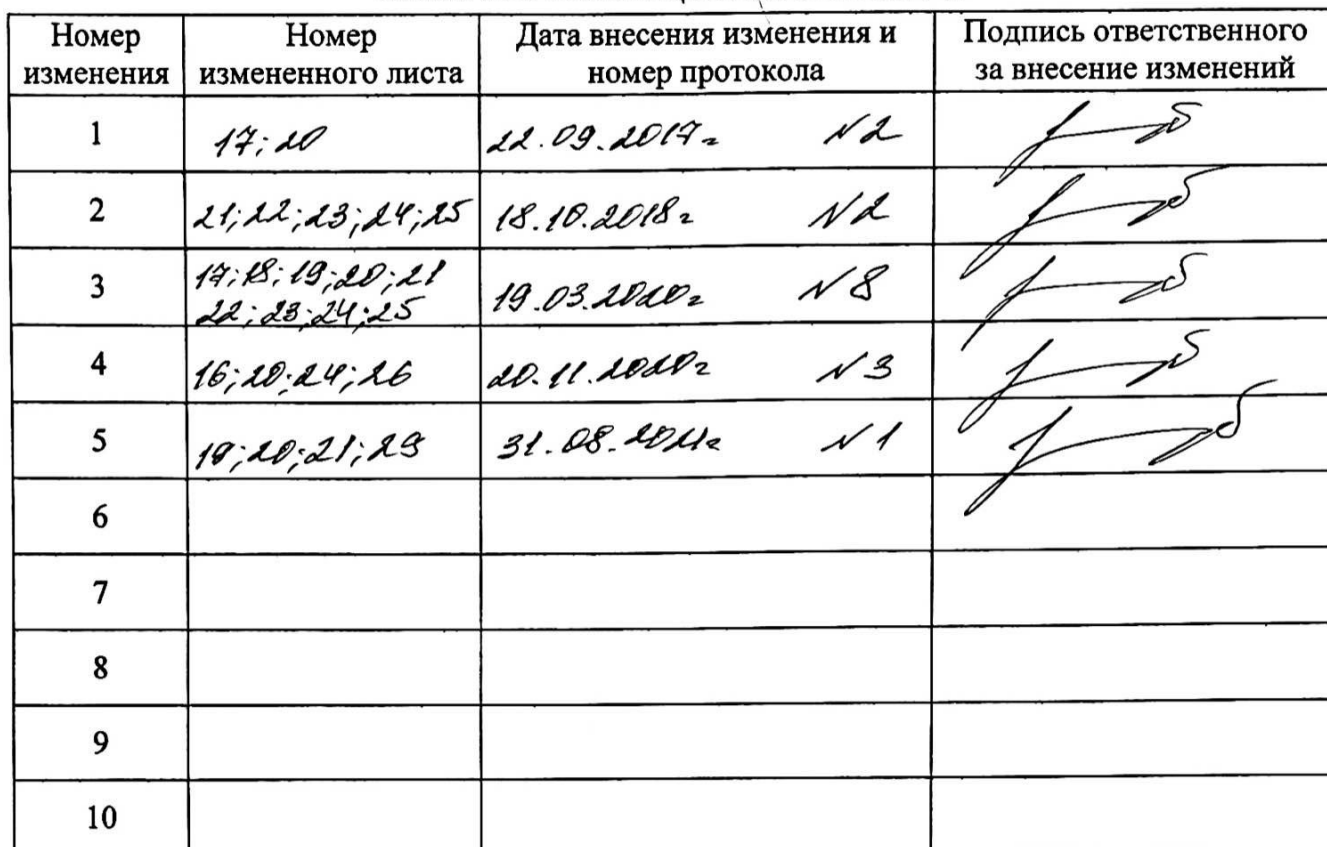 Номер изменения Номер измененного листа Дата внесения изменения и номер протокола Подпись ответственного за внесение изменений
1 17; 20 22.09.2017г N2
2 21; 22; 23; 24; 25 18.10.2018г N2
3 17; 18; 19; 20; 21
22; 23; 24; 25 19.03.2020г N8
4 16; 20; 24; 26 20.11.2020г N3
5 19; 20; 21; 29 31.08.2021г N1
6
7
8
9
10